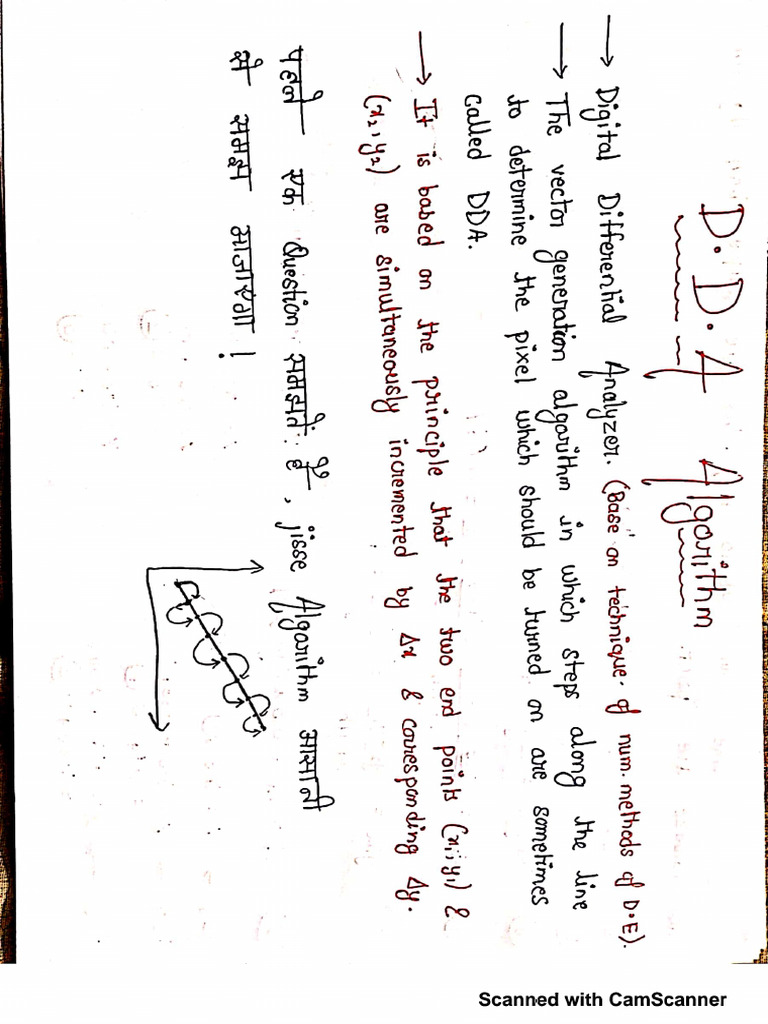 D.D.A Algorithm
→ Digital Differential Analyzer. (Base on technique of num. methods of D.E).
→ The vector generation algorithm in which steps along the line
to determine the pixel which should be turned on are sometimes
called DDA.
→ It is based on the principle that the two end points (x₁, y₁) &
(x₂, y₂) are simultaneously incremented by Δx & corresponding Δy.
पहले एक Question समझते हैं, jisse Algorithm आसानी
से समझ आजाएगा !
Scanned with CamScanner